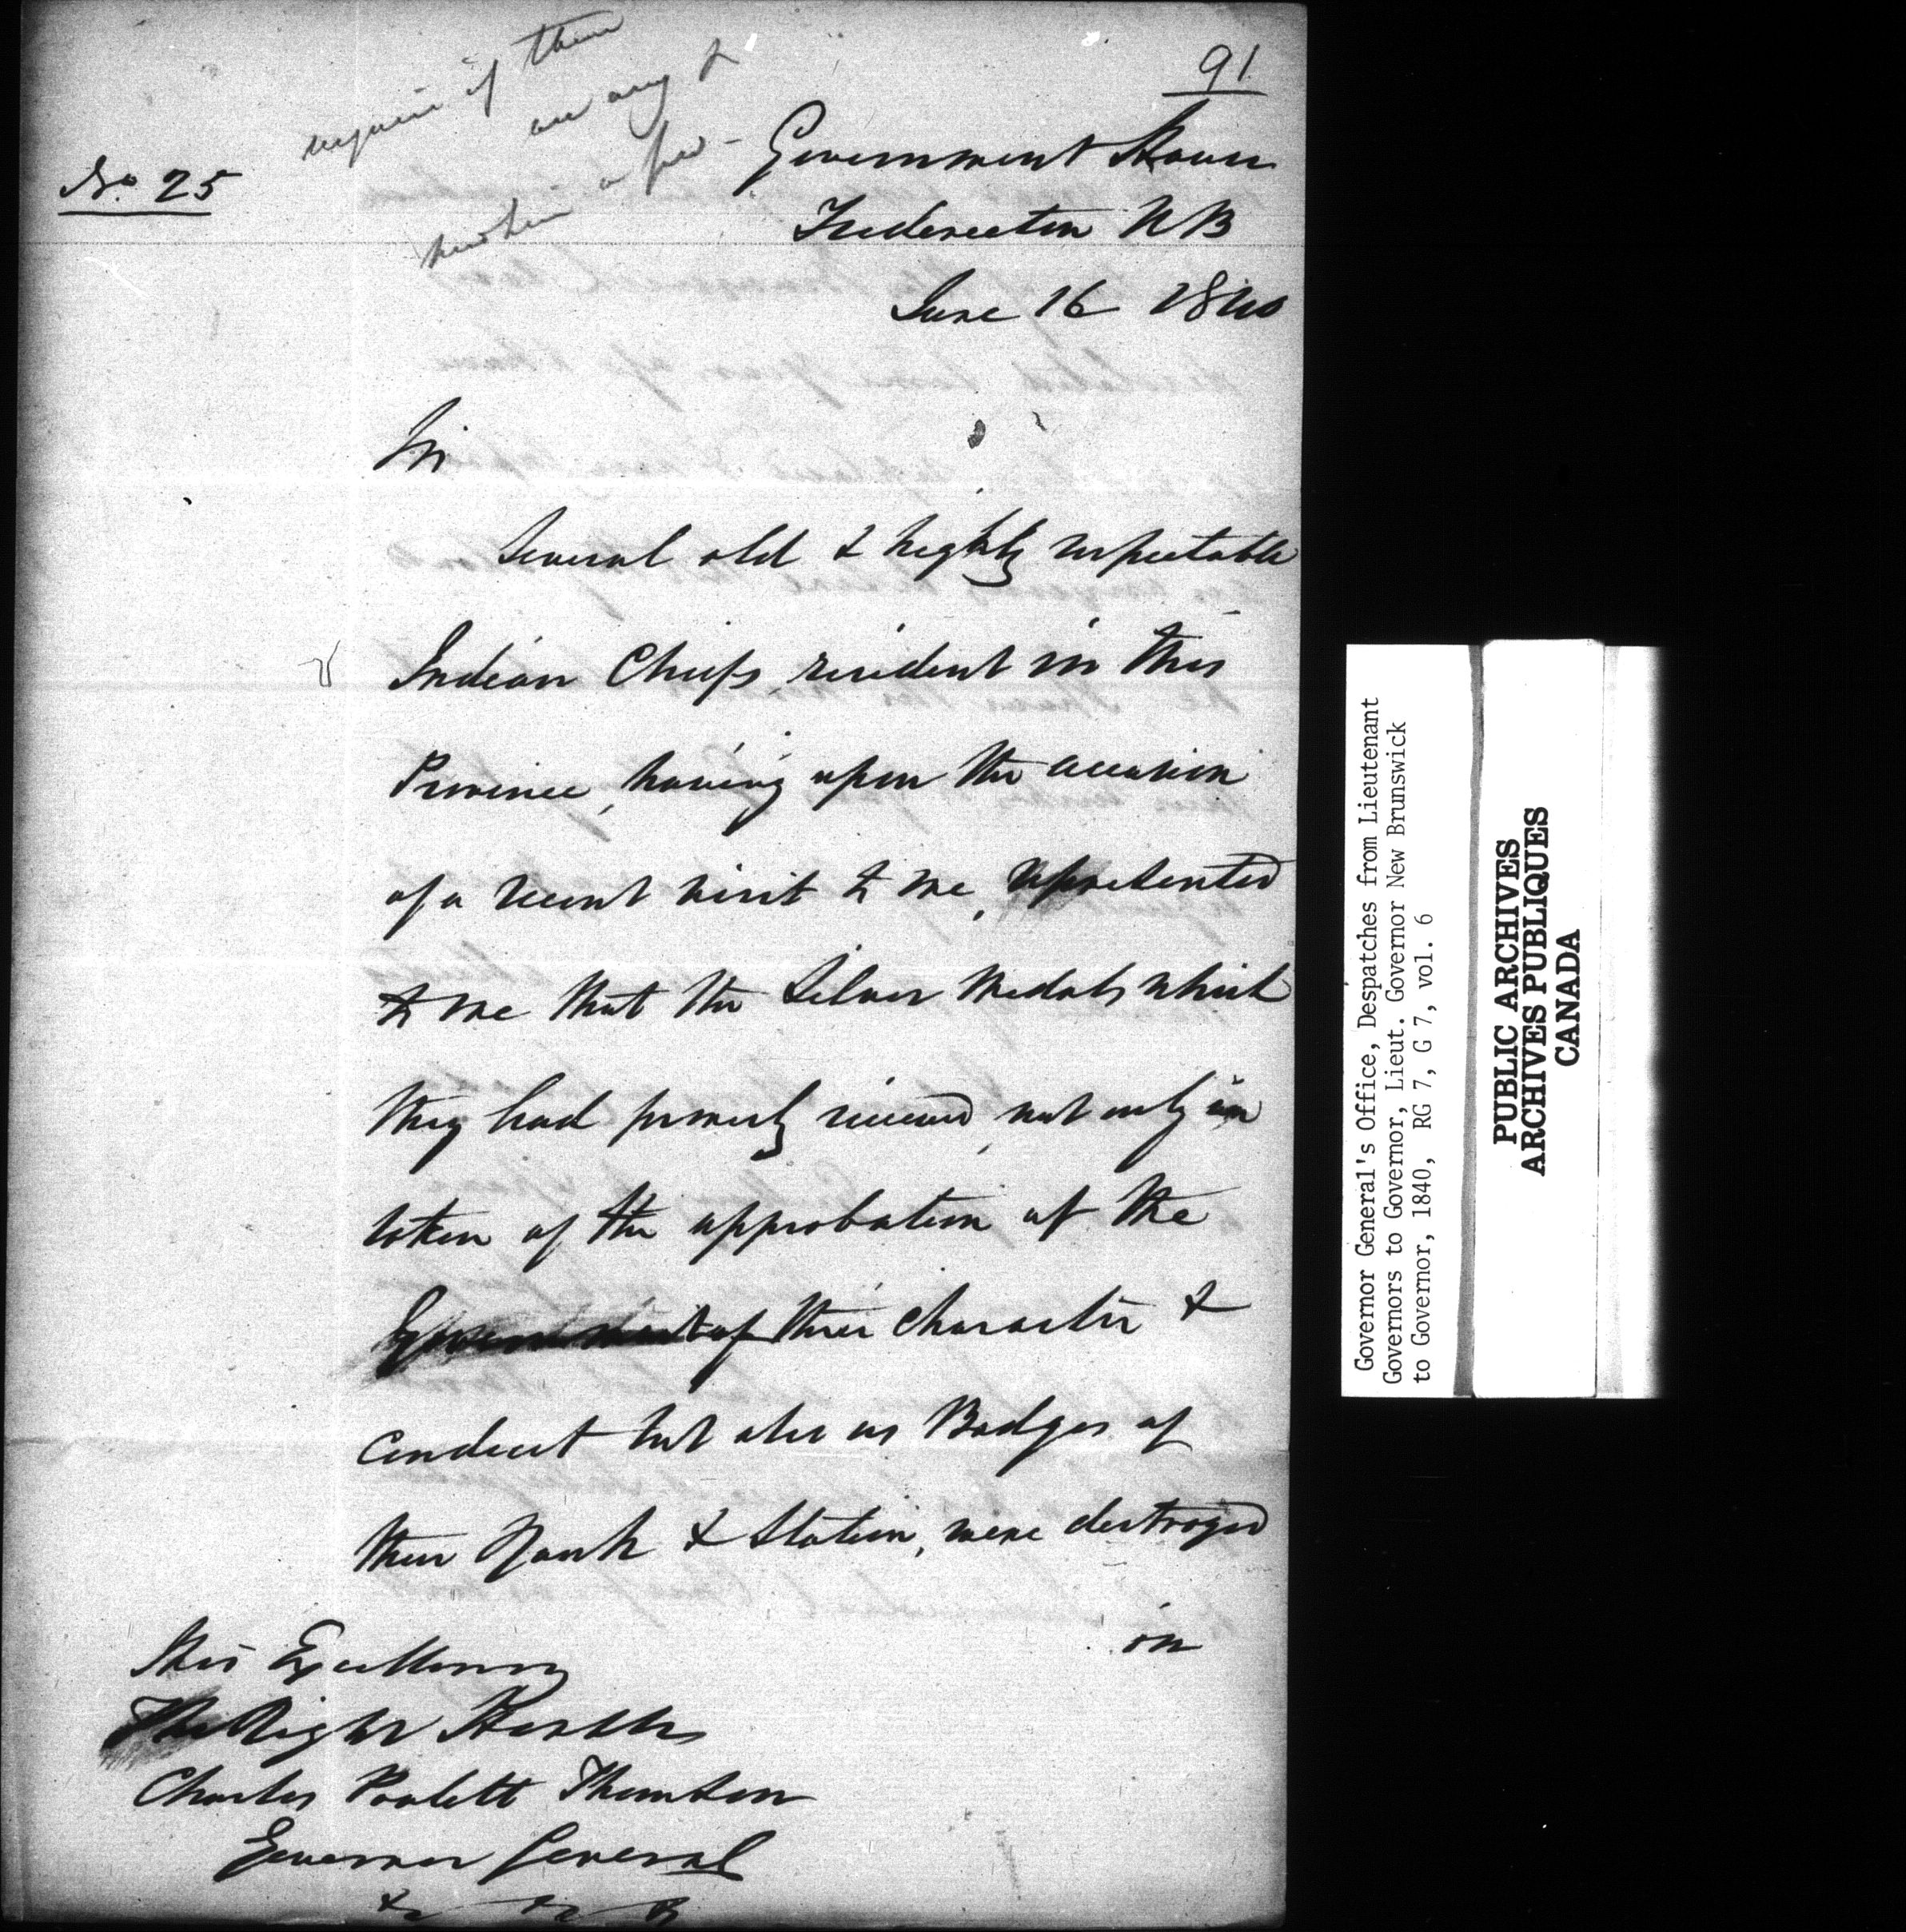 91
No. 25
require if there
are any &
a few
Government House
Fredericton NB
June 16 1840
Sir
Several old & highly respectable
Indian Chiefs, resident in this
Province, having upon the occasion
of a recent visit to me, represented
to me that the Silver Medals which
they had formerly received, not only in
token of the approbation of the
Government of their character &
conduct but also as Badges of
their Rank & Station, were destroyed
in
His Excellency
The Right Honble
Charles Poulett Thomson
Governor General
&c &c &c
Governor General's Office, Despatches from Lieutenant
Governors to Governor, Lieut. Governor New Brunswick
to Governor, 1840, RG 7, G 7, vol. 6
PUBLIC ARCHIVES
ARCHIVES PUBLIQUES
CANADA